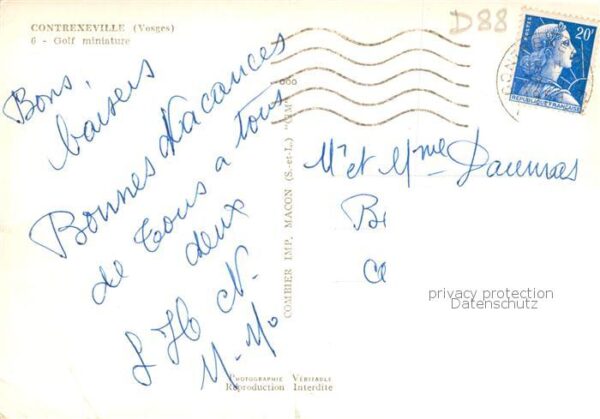 CONTREXEVILLE (Vosges)
6 - Golf miniature
D88
20F
REPUBLIQUE FRANÇAISE
Bons baisers
Bonnes Vacances
de tous a tous
deux
M-Mo
COMBIER IMP. MACON (S.-et-L.) "CIM"
Mr et Mme Daumas
privacy protection
Datenschutz
Photographie Véritable
Reproduction Interdite